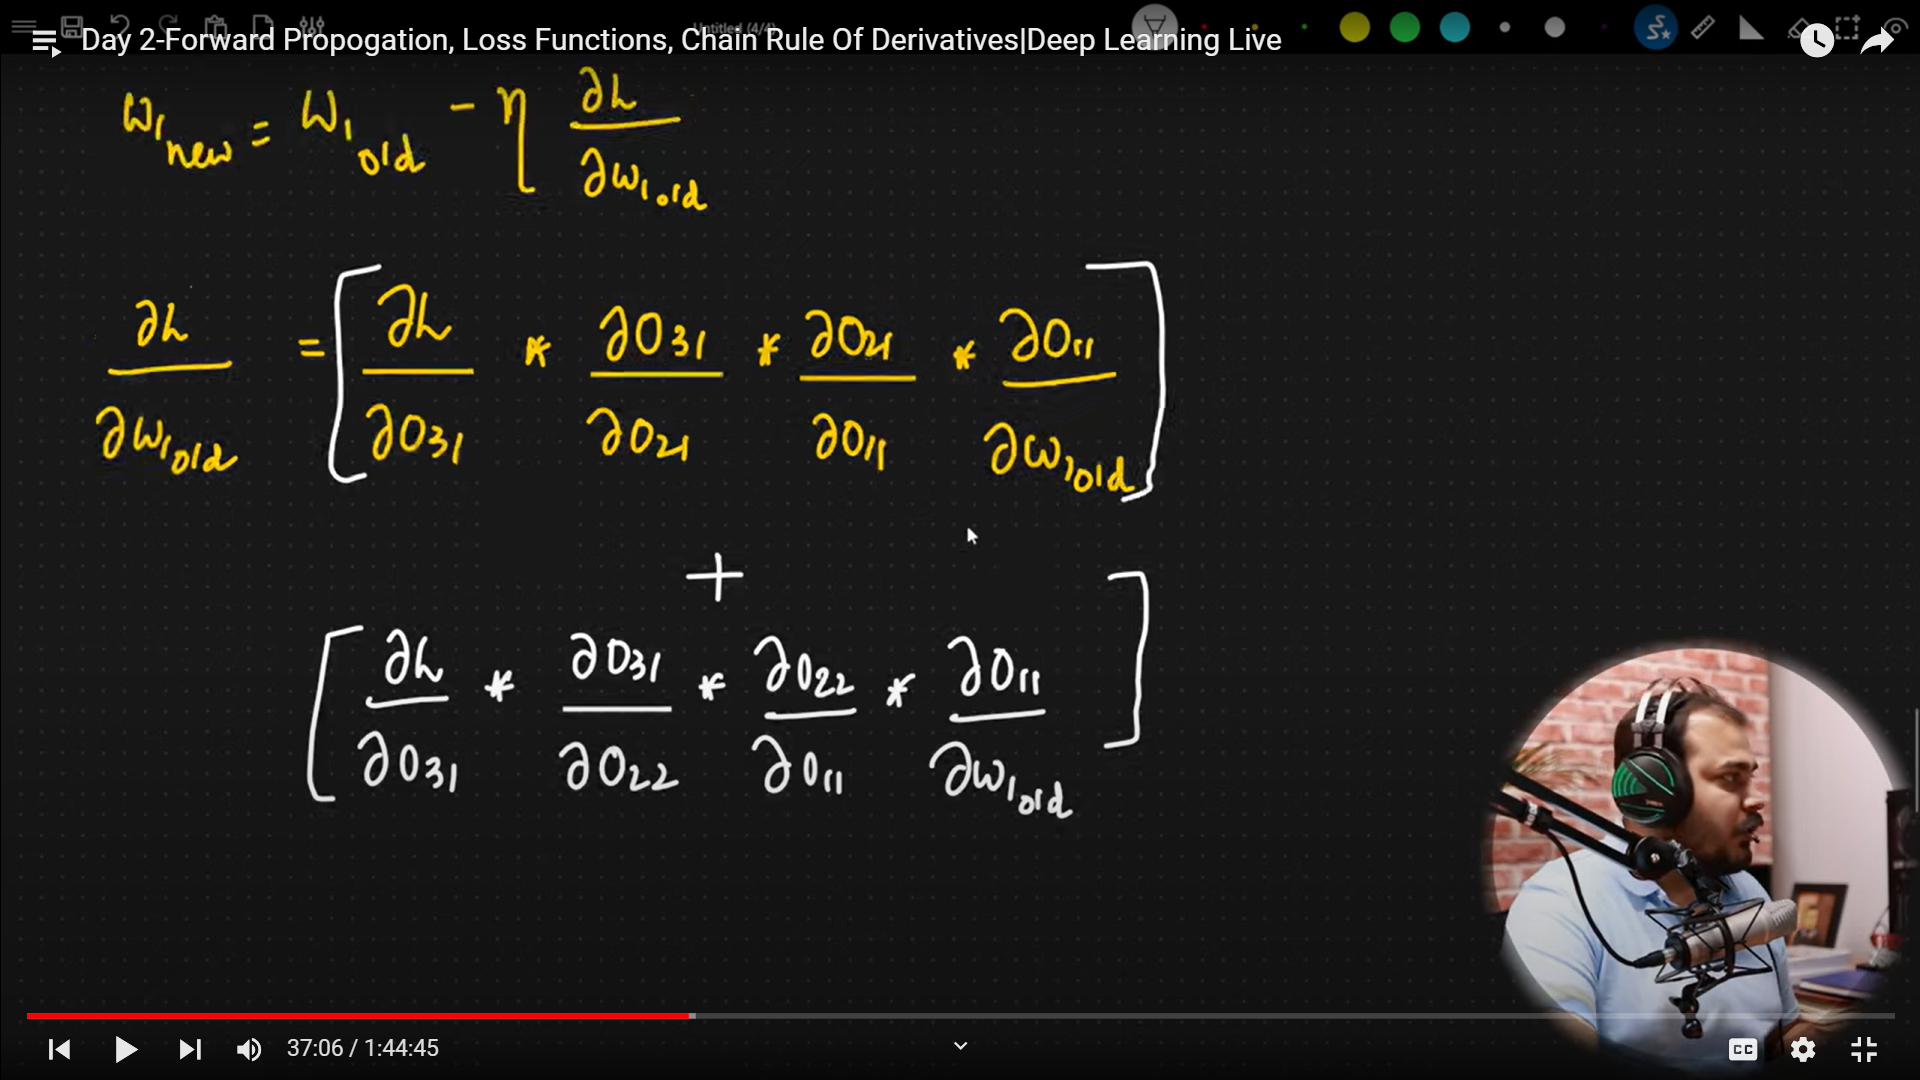 Untitled (4/4)
Day 2-Forward Propogation, Loss Functions, Chain Rule Of Derivatives|Deep Learning Live
w₁new = w₁old - η ∂L/∂w₁old
∂L/∂w₁old = [∂L/∂O31 * ∂O31/∂O21 * ∂O21/∂O11 * ∂O11/∂w₁old]
+
[∂L/∂O31 * ∂O31/∂O22 * ∂O22/∂O11 * ∂O11/∂w₁old]
37:06 / 1:44:45
CC